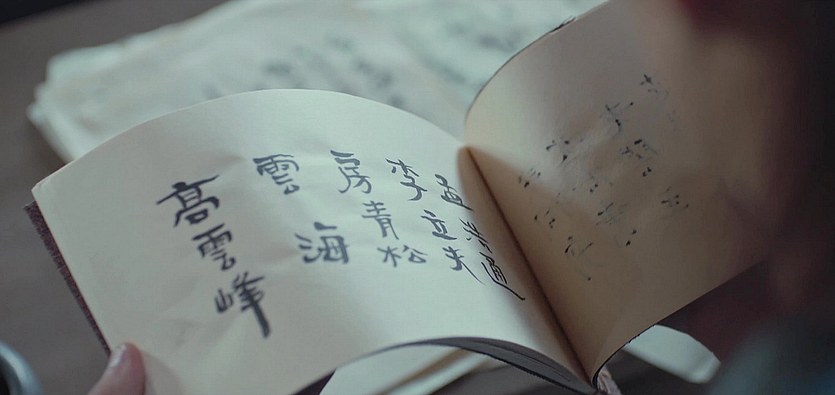 孟
李立夫
房青松
雲海
高雲峰